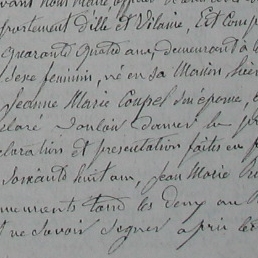 vant nous maire, officier de
partement d'ille et Vilaine, est Comp
quarante quatre ans, demeurant à l
Sexe feminin, né en sa Maison
Jeanne Marie Coupel son épouse, e
claré vouloir donner le pr
claration et presentation faites en p
Soixante huit ans, Jean Marie
tous les deux au
ne savoir signer après le